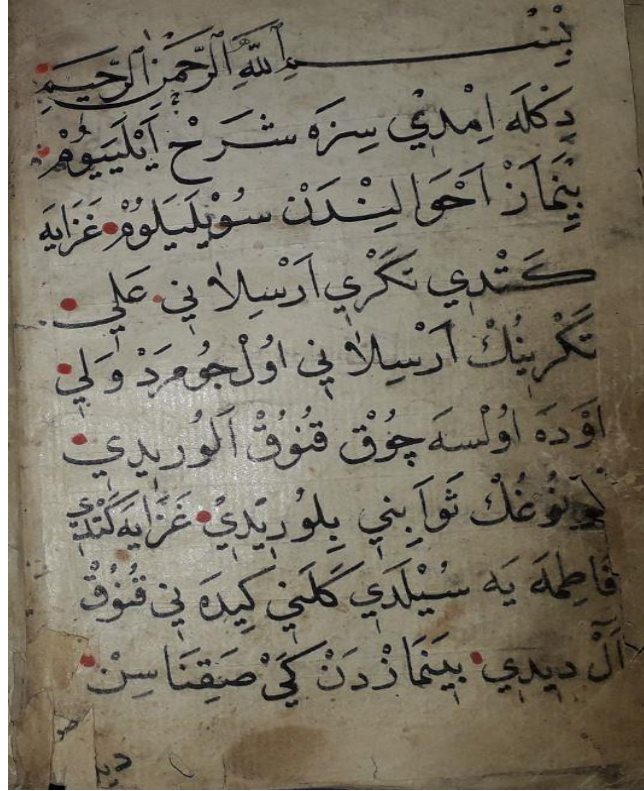 بِسْمِ اللّٰهِ الرَّحْمٰنِ الرَّحِيمِ
دَكْلَه اِمْدِيْ سِزَه شَرَحْ اَيْلَيَيُوُمْ
بَيْنَمازْ اَحْوَالِنْدَنْ سُوْيْلَيَلُوُمْ غَزَايَه
كَتْدِي تَكْرِي اَرْسِلَانِي عَلِي
تَكْرِينُكْ اَرْسِلَانِي اُولْ جُومَرَدْ وَلِي
اَوْدَه اُولْسَه چُوْقْ قُنُوقْ اَلُورِيدِي
قُونُوغُكْ ثَوَابِنِي بِلُورِيْدِيْ غَزَايَه كَتْدِي
فَاطِمَه يَه سُيْلَدِي كَلَنِي كِيدَه نِي قُنُوقْ
اَلْ دِيدِي بِيَنَمَازْدَنْ كَيْ صَقِنَاسِنْ
دید